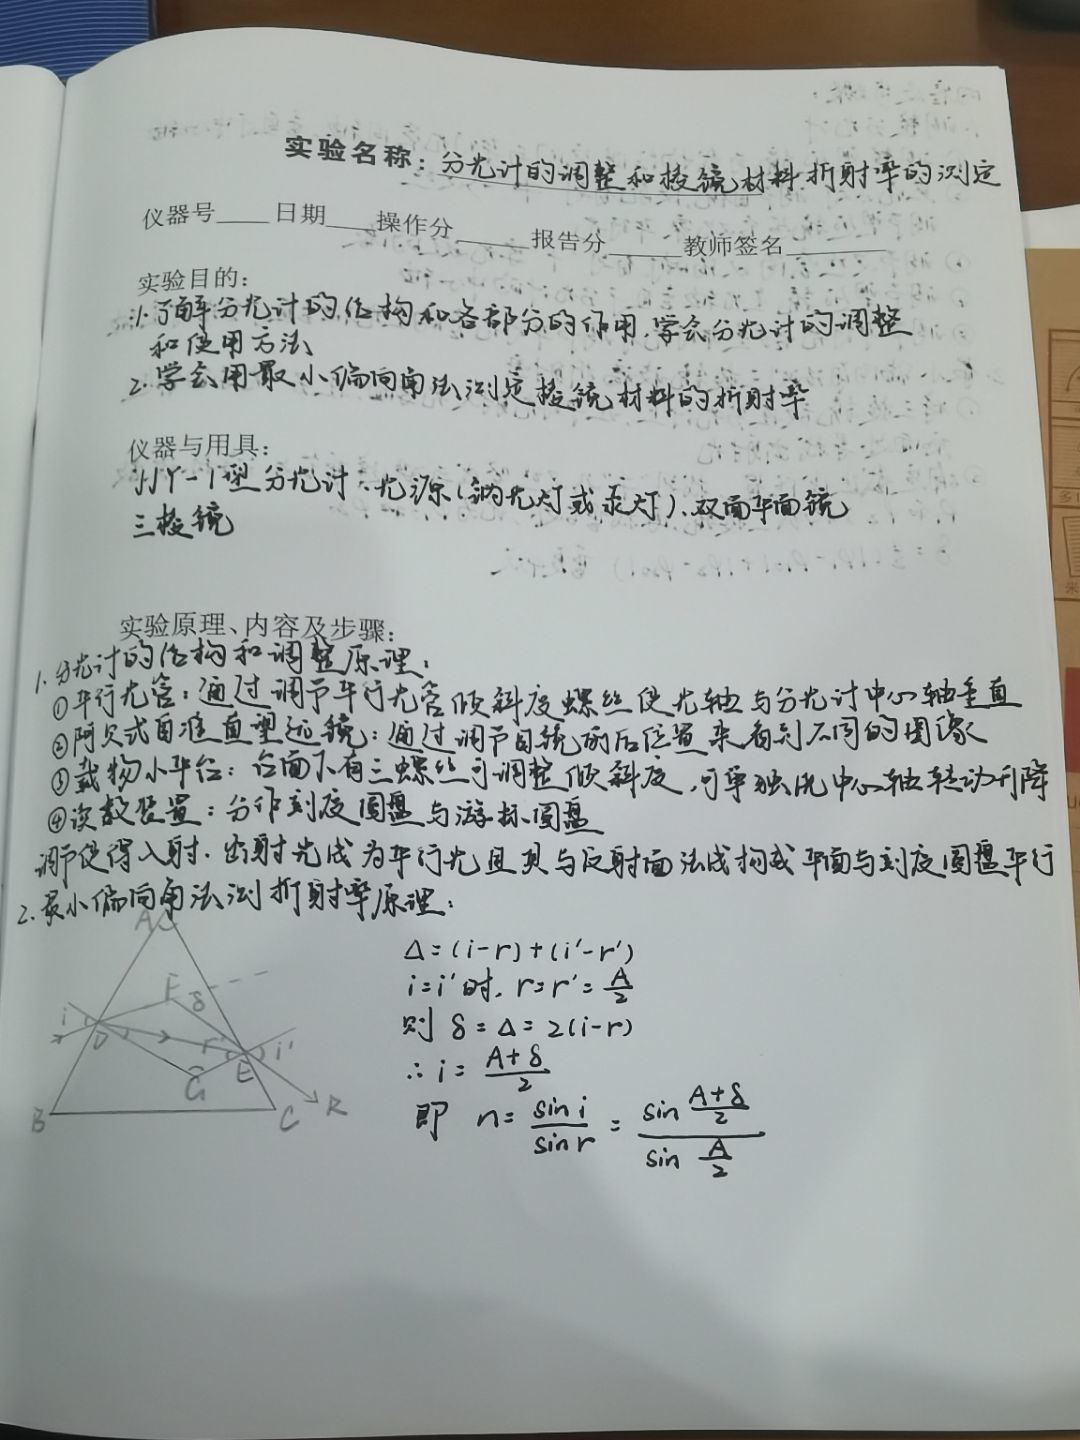 实验名称：分光计的调整和棱镜材料折射率的测定
仪器号____日期____操作分______报告分______教师签名________
实验目的：
1. 了解分光计的结构和各部分的作用，学会分光计的调整
和使用方法
2. 学会用最小偏向角法测定棱镜材料的折射率
仪器与用具：
JJY-1型分光计、光源(钠光灯或汞灯)、双面平面镜
三棱镜
实验原理、内容及步骤：
1. 分光计的结构和调整原理：
①平行光管：通过调节平行光管倾斜度螺丝使光轴与分光计中心轴垂直
②阿贝式自准直望远镜：通过调节目镜前后位置来看到不同的图像
③载物小平台：台面下有三螺丝可调整倾斜度，可单独沉中心轴转动升降
④读数装置：分作刻度圆盘与游标圆盘
调节使得入射、出射光成为平行光且其与反射面法成构成平面与刻度圆盘平行
2. 最小偏向角法测折射率原理：
A
F δ
i D r' E i'
G
B C R
Δ=(i-r)+(i'-r')
i=i'时，r=r'=A/2
则 δ=Δ=2(i-r)
∴ i=(A+δ)/2
即 n=sin i/sin r=sin (A+δ)/2 / sin A/2